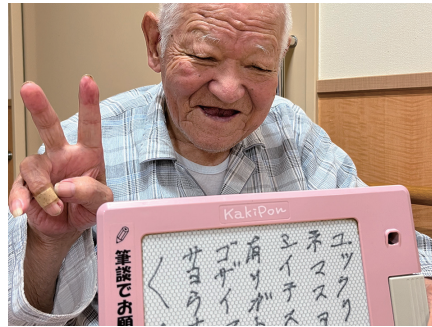 KakiPon
筆談でお願
ユックリ
ネマスヨ
シイテス
有リガト
ゴザイマ
サヨウナ
く